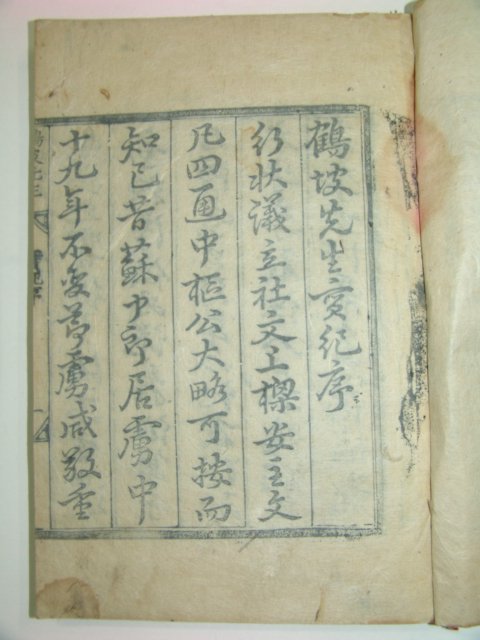 鶴坡先生實紀序
行狀議立社文上樑安主文
凡四通中樞公大略可按而
知已昔蘇中郎居虜中
十九年不変節虜咸敬重